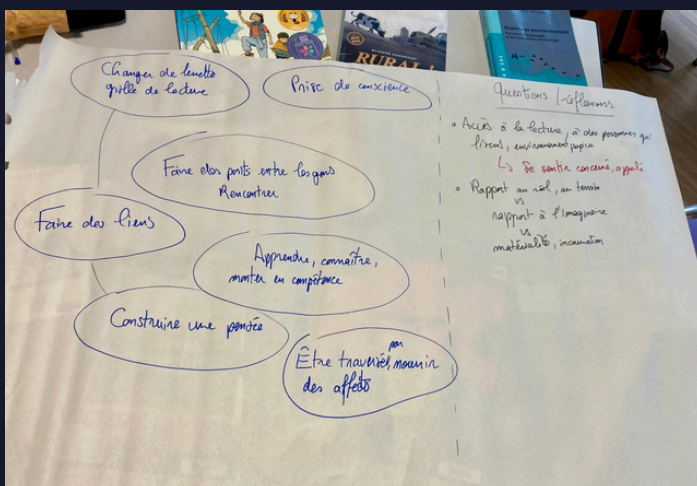 RURAL
Changer de lunette
grille de lecture
Prise de conscience
Faire des ponts entre les gens
Rencontrer
Faire des liens
Apprendre, connaître,
monter en compétence
Construire une pensée
Être traversés, nourrir
par
des affects
Questions / réflexions
• Accès à la lecture, à des personnes qui
lisent, environnement propice
↳ Se sentir concerné, appelé
• Rapport au réel, au terrain
vs
rapport à l'imaginaire
vs
matérialité, incarnation